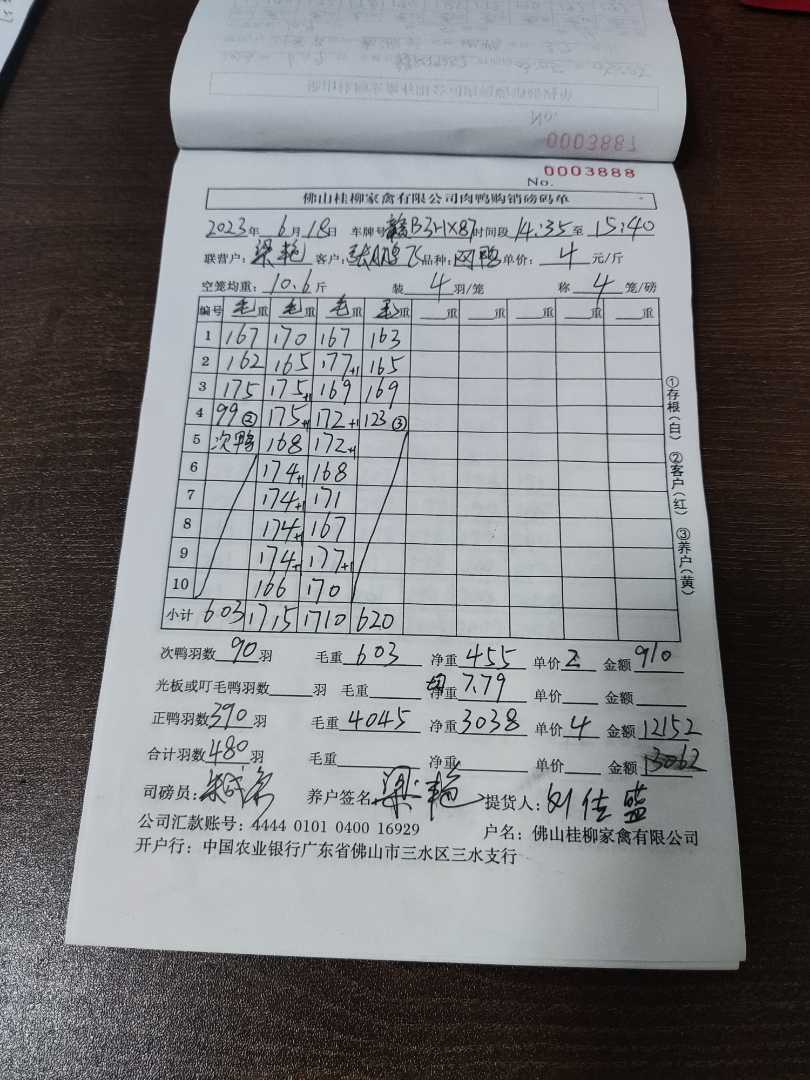 0003887
0003888
No.
佛山桂柳家禽有限公司肉鸭购销磅码单
2023年 6月 18日 车牌号 赣B3HX87 时间段 14:35 至 15:40
联营户: 梁艳 客户: 张鹏飞 品种: 网鸭 单价: 4 元/斤
空笼均重: 10.6 斤 装 4 羽/笼 称 4 笼/磅
编号 毛重 毛重 毛重 毛重 重 重 重 重 重
1 167 170 167 163
2 162 165 177+1 165
3 175 175+1 169 169
4 99② 175+1 172+1 123③
5 次鸭 168 172+1
6 174+1 168
7 174+1 171
8 174+1 167
9 174+1 177+1
10 166 170
小计 603 1715 1710 620
①存根(白) ②客户(红) ③养户(黄)
次鸭羽数 90 羽 毛重 603 净重 455 单价 2 金额 910
光板或叮毛鸭羽数 羽 毛重 净重 7.79 单价 金额
正鸭羽数 390 羽 毛重 4045 净重 3038 单价 4 金额 12152
合计羽数 480 羽 毛重 净重 单价 金额 13062
司磅员: 养户签名 梁艳 提货人: 刘佳盛
公司汇款账号: 4444 0101 0400 16929 户名: 佛山桂柳家禽有限公司
开户行: 中国农业银行广东省佛山市三水区三水支行